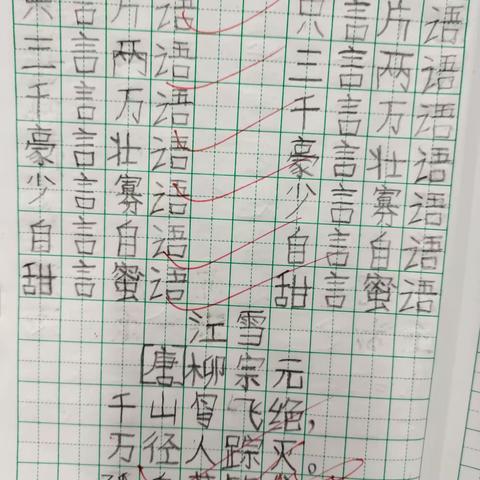 只言片语 只言片语
三言两语 三言两语
千言万语 千言万语
豪言壮语 豪言壮语
少言寡语 少言寡语
自言自语 自言自语
甜言蜜语 甜言蜜语
江雪
[唐]柳宗元
千山鸟飞绝，
万径人踪灭。